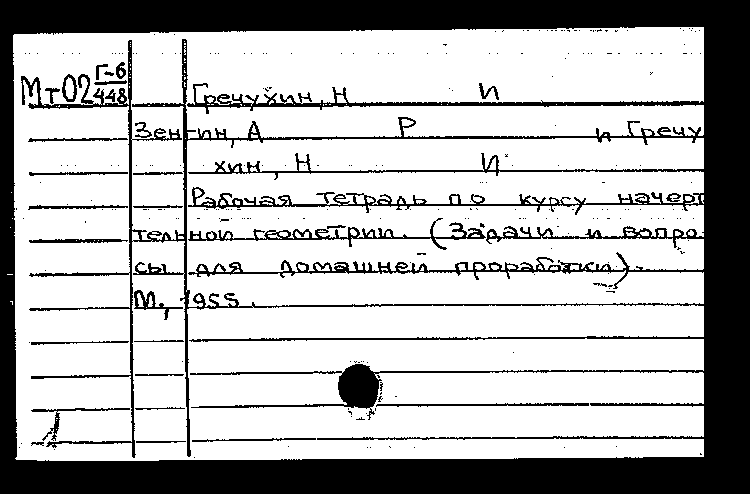 Мт02 Г-6
448
Гречухин, Н И
Зенгин, А Р и Гречу
хин, Н И
Рабочая тетрадь по курсу начерт
тельной геометрии. (Задачи и вопро
сы для домашней проработки).
М., 1955.
1